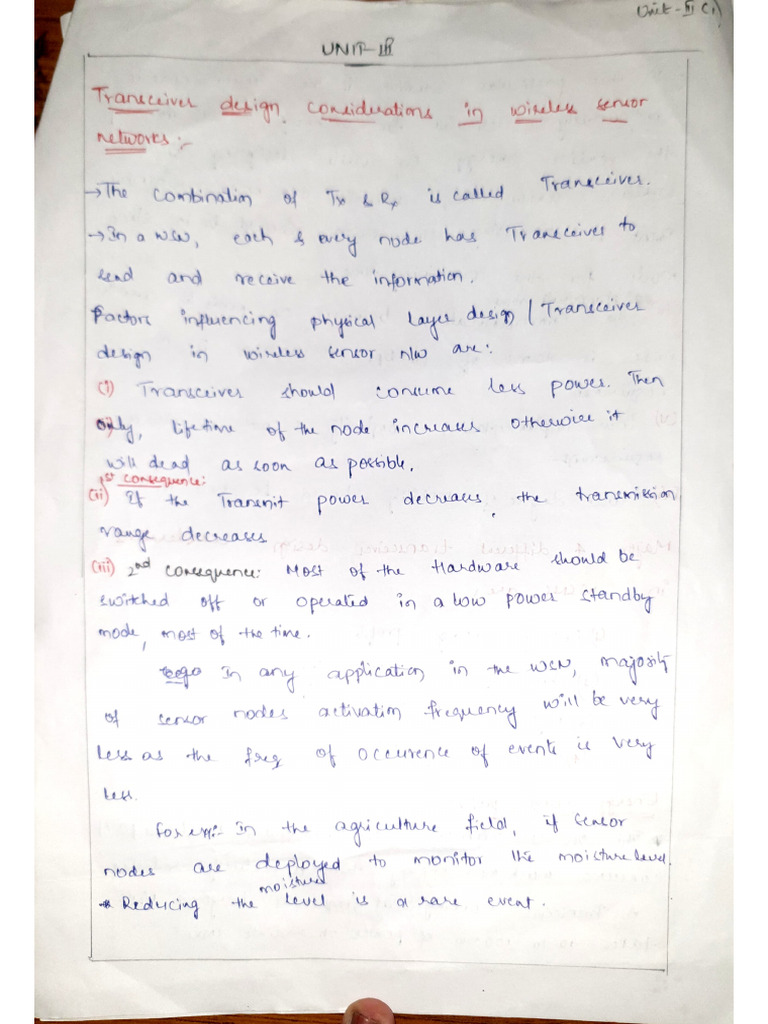 Unit-III (1)
UNIT-III
Transceiver design considerations in wireless sensor
networks:-
→The combination of Tx & Rx is called Transceiver.
→In a WSN, each & every node has Transceiver to
send and receive the information.
Factors influencing physical layer design / Transceiver
design in wireless sensor n/w are:
(i) Transceiver should consume less power. Then
only, life time of the node increases otherwise it
will dead as soon as possible.
1st consequence:
(ii) If the Transmit power decreases, the transmission
range decreases
(iii) 2nd consequence: Most of the Hardware should be
switched off or operated in a low power standby
mode, most of the time.
In any application in the WSN, majority
of sensor nodes activation frequency will be very
less as the freq of occurence of events is very
less.
For ex:- In the agriculture field, if sensor
nodes are deployed to monitor the moisture level.
* Reducing the moisture level is a rare event.